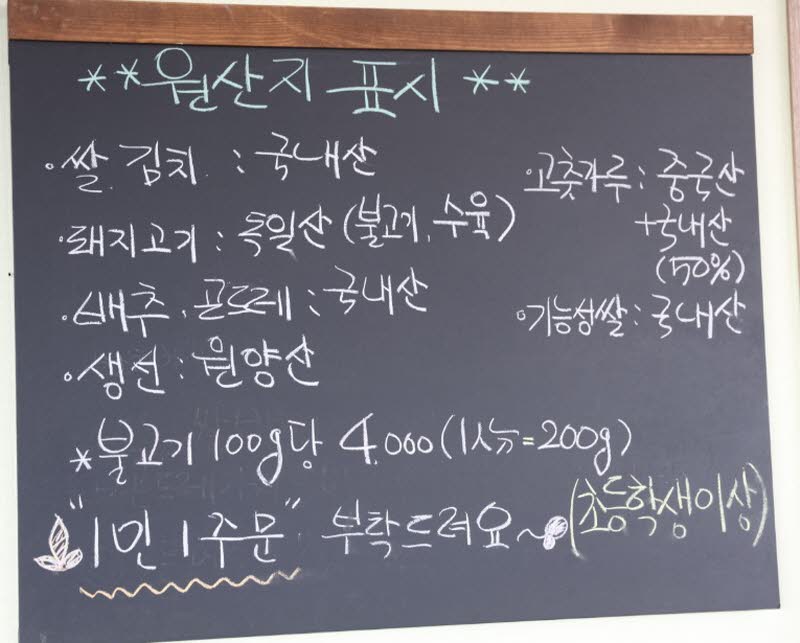 **원산지 표시**
·쌀. 김치 : 국내산
·돼지고기 : 독일산 (불고기, 수육)
·배추, 곤드레 : 국내산
·생선 : 원양산
·고춧가루 : 중국산
+국내산
(50%)
·기능성쌀 : 국내산
*불고기 100g당 4.000 (1人分=200g)
"1인 1주문" 부탁드려요~ (초등학생이상)